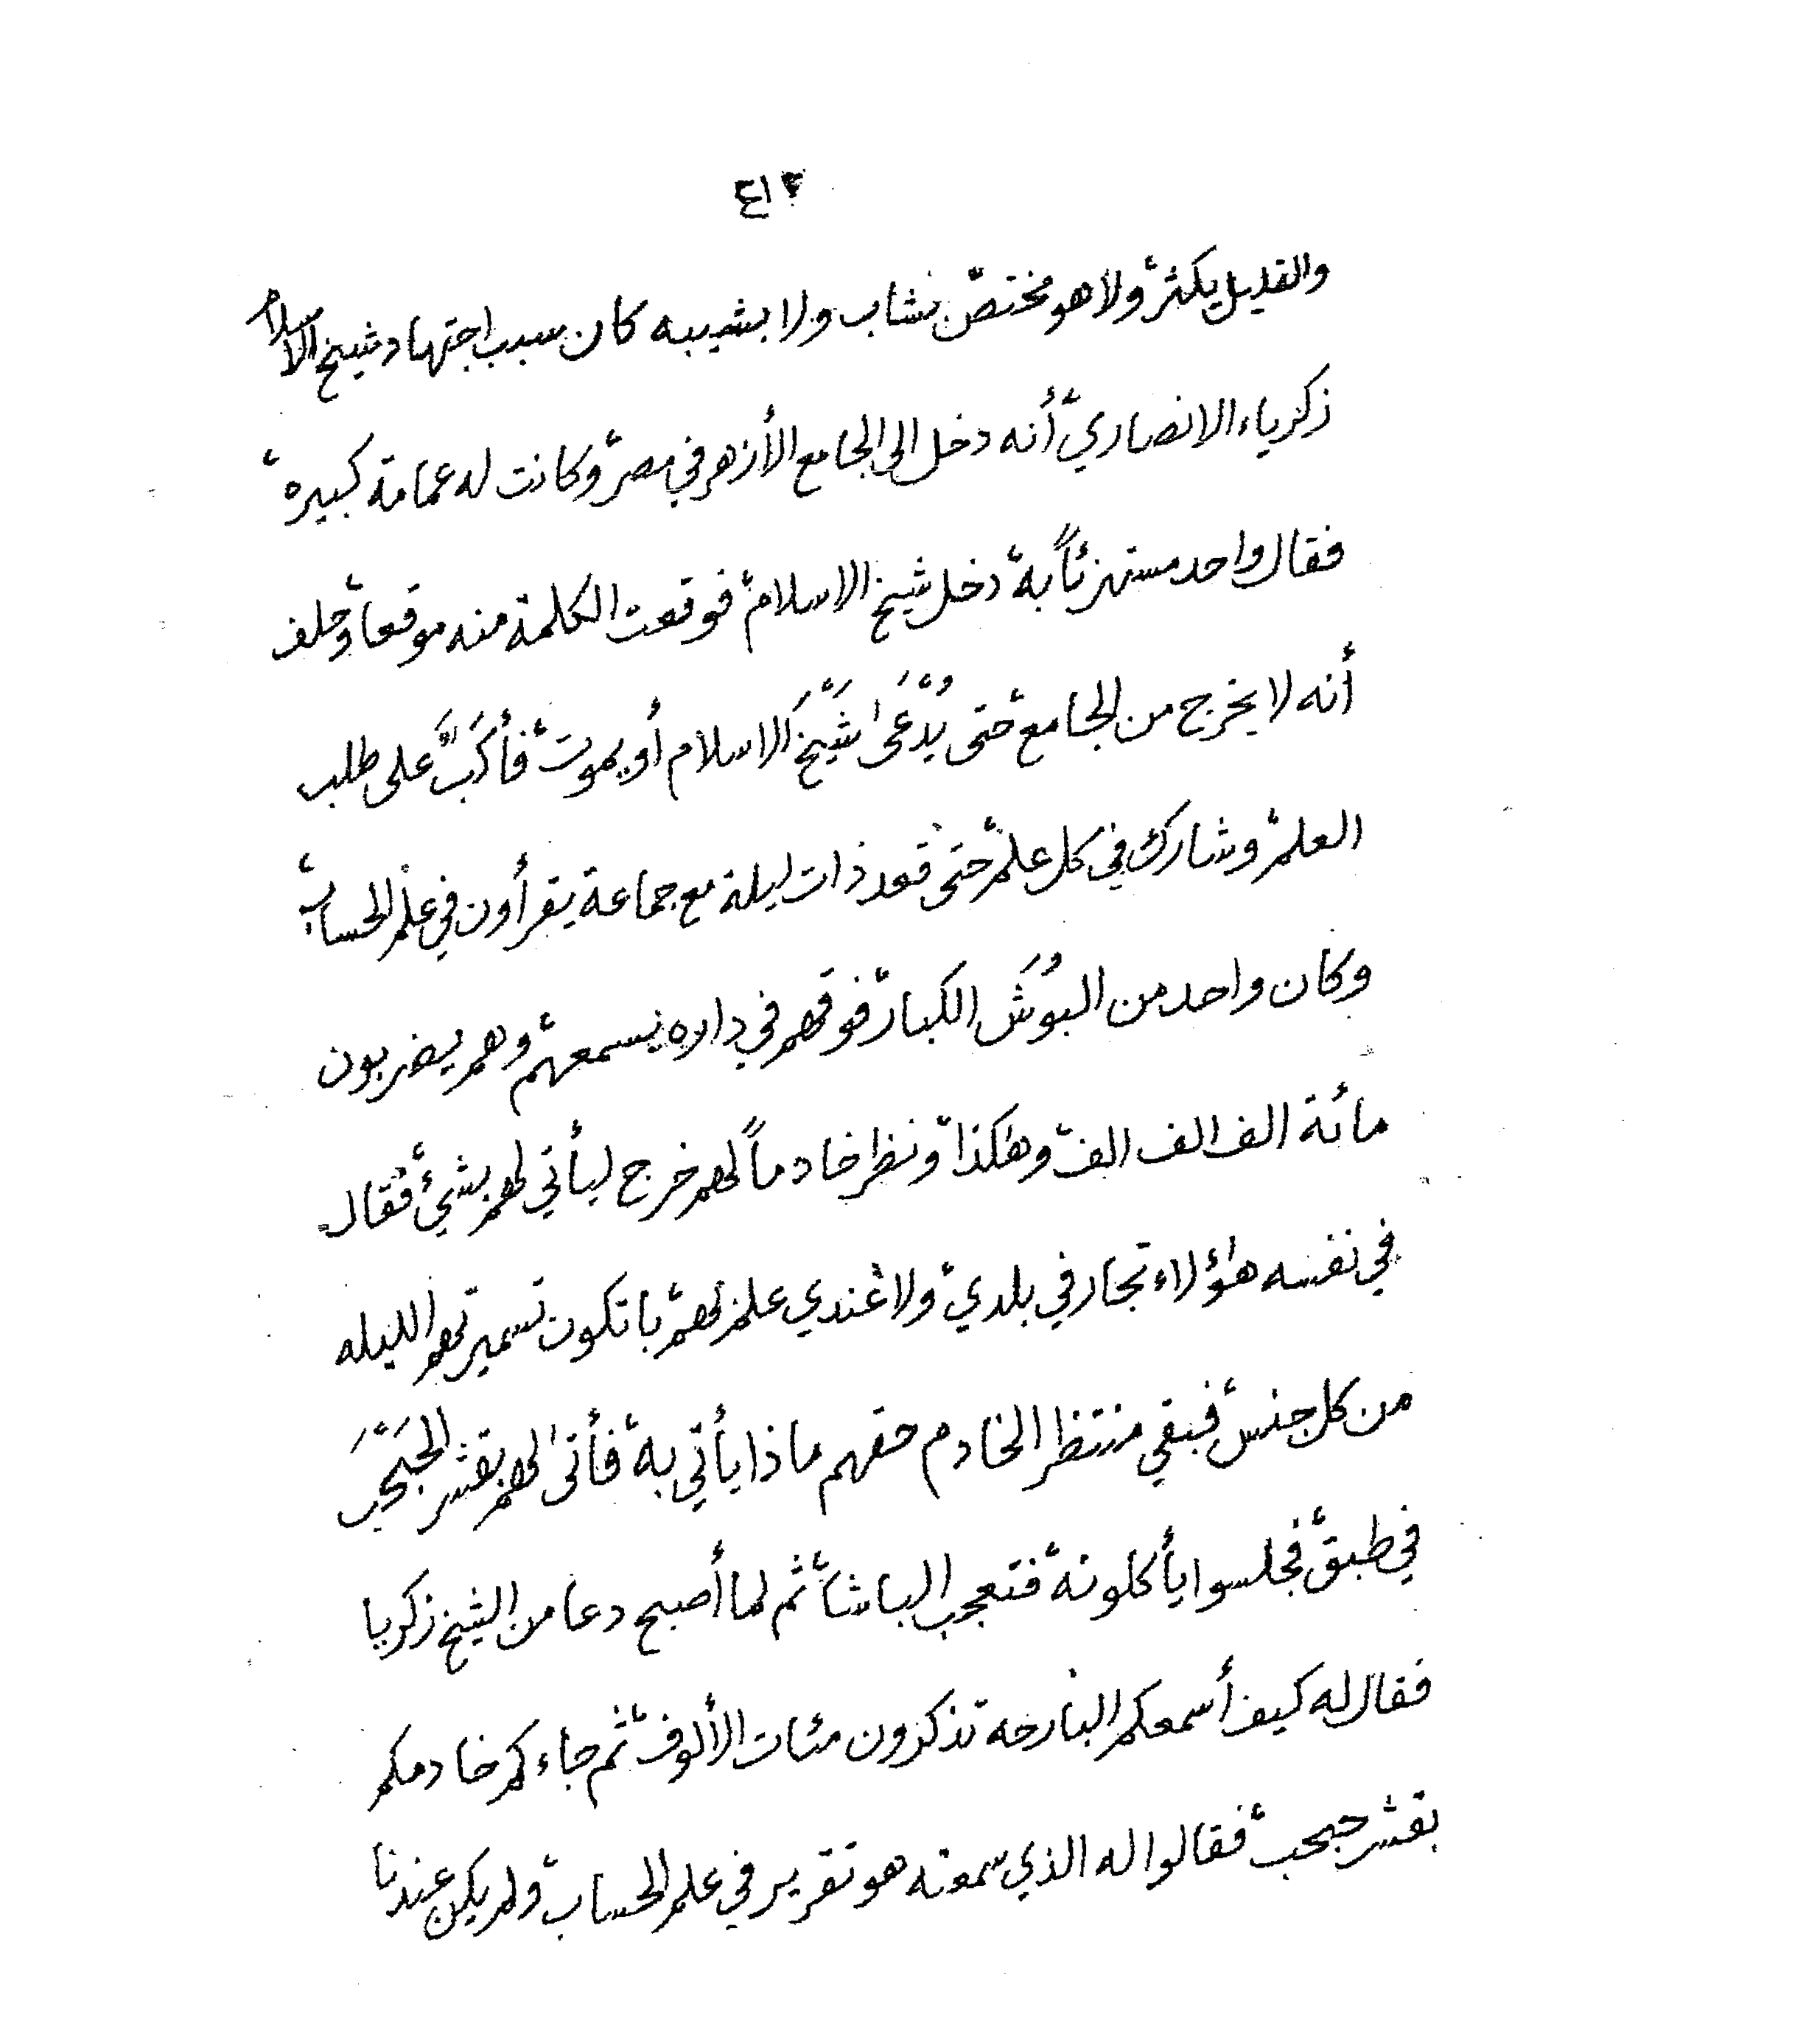 ٤١٢
والقليل يكثر، ولا هو مختصّ بشاب ولا بشيبه كان سبب اجتهاد شيخ الاسلام
زكرياء الانصاريّ، أنه دخل الى الجامع الأزهر في مصر، وكانت له عمامة كبيره،
فقال واحد مستهزئاً به، دخل شيخ الاسلام، فوقعت الكلمة منه موقعا، وحلف
أنه لا يخرج من الجامع، حتى يُدْعَىٰ شَيْخَ الاسلام أو يموت، فأكَبَّ على طلب
العلم، وشارك في كل علم، حتى قعد ذات ليلة مع جماعة يقرأون في علم الحساب،
وكان واحد من البُوَش الكبار، فوقهم في داره يسمعهم، وهم يضربون
مائة الف الف الف، وهٰكذا، ونظر خادماً لهم خرج ليأتي لهم بشيئ، فقال
في نفسه هٰؤلاء تجار في بلدي، ولا عندي علم لهم، با تكون تسميرتهم الليله
من كل جنس، فبقي منتظر الخادم حقهم ماذا يأتي به، فأتىٰ لهم بقشر الجَبْحَب
في طبق، فجلسوا يأكلونه، فتعجب الباشا، ثم لما أصبح دعا من الشيخ زكريا
فقال له كيف أسمعكم البارحه تذكرون مئات الألوف، ثم جاءكم خادمكم
بقشر جبحب، فقالوا له الذي سمعته هو تقرير في علم الحساب، ولم يكن عندنا